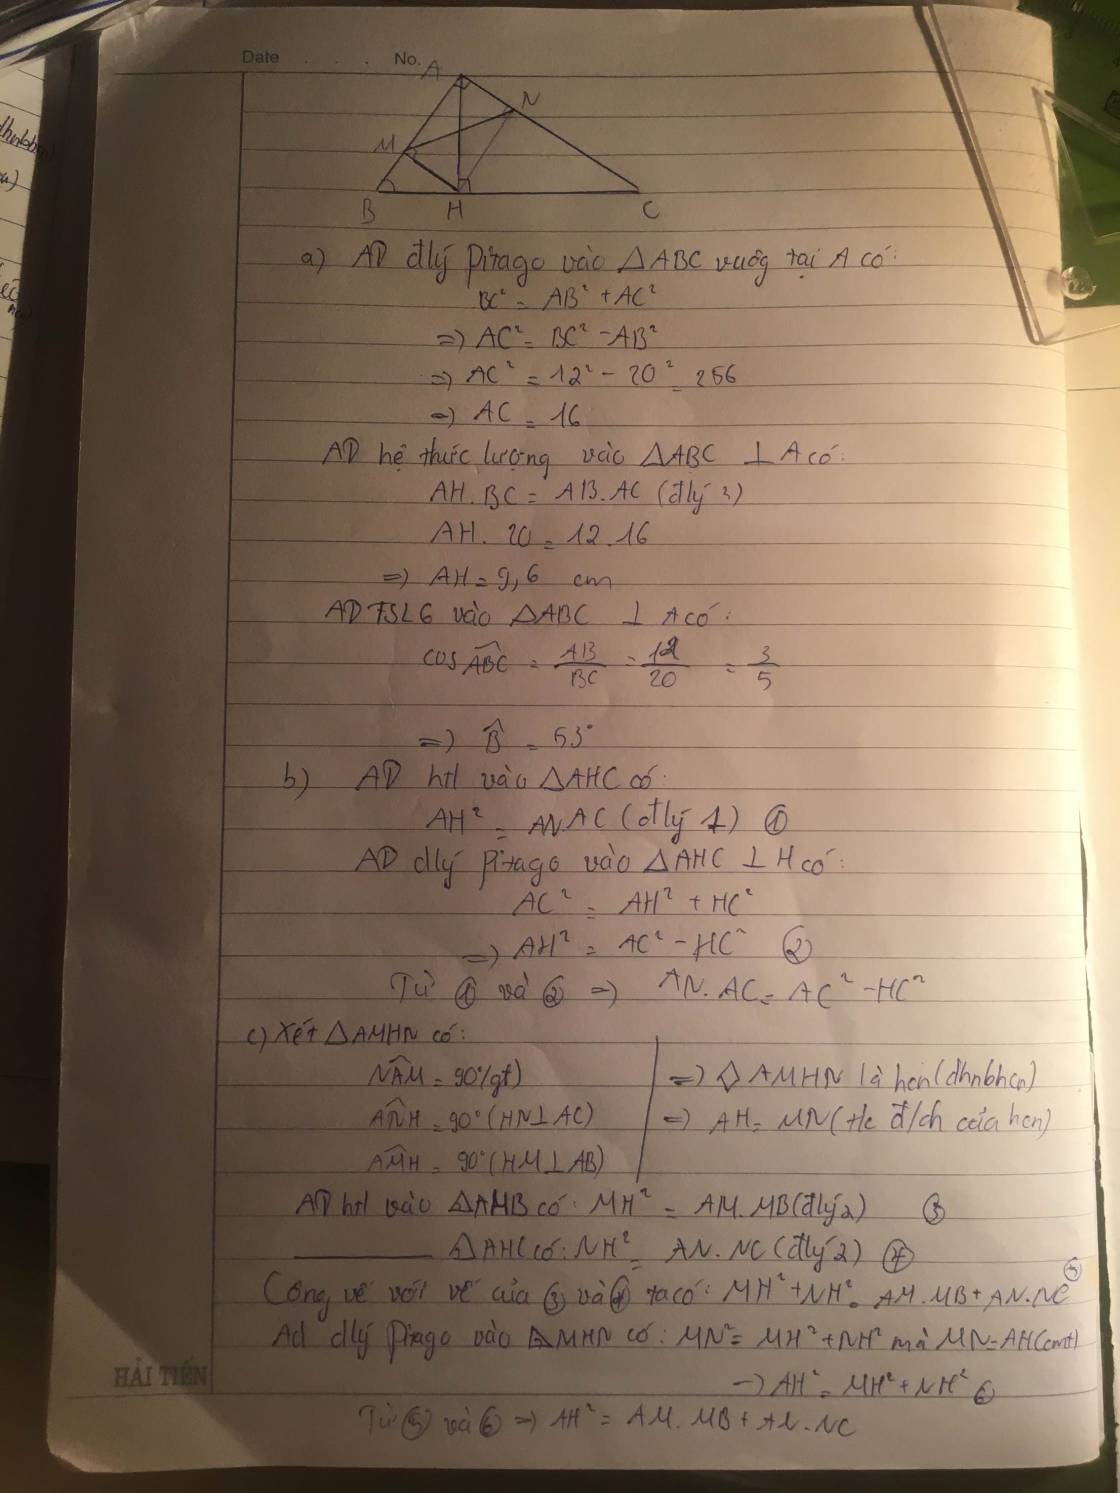 Date . . . . No.
A
N
M
B H C
a) AD đlý Pitago vào △ABC vuôg tại A có:
BC² = AB² + AC²
=) AC² = BC² - AB²
=) AC² = 12² - 20² = 256
=) AC = 16
AD hệ thức lượng vào △ABC ⊥ A có:
AH.BC = AB.AC (đlý 3)
AH. 20 = 12.16
=) AH = 9,6 cm
AD TSLG vào △ABC ⊥ A có:
cos ABC = AB/BC = 12/20 = 3/5
=) B̂ = 53°
b) AD htl vào △AHC có:
AH² = AN.AC (đlý 1) ①
AD đlý Pitago vào △AHC ⊥ H có:
AC² = AH² + HC²
=) AH² = AC² - HC² ②
Từ ① và ② =) AN.AC = AC² - HC²
c) Xét △AMHN có:
NAM = 90° (gt) =) ◇ AMHN là hcn (dhnbhcn)
ANH = 90° (HN⊥AC) =) AH = MN (t/c đ/ch của hcn)
AMH = 90° (HM⊥AB)
AD htl vào △AMB có: MH² = AM.MB (đlý 2) ③
△AHC có: NH² = AN.NC (đlý 2) ④
Cộng vế với vế của ③ và ④ ta có: MH² + NH² = AM.MB + AN.NC ⑤
Ad đlý Pitago vào △MHN có: MN² = MH² + NH² mà MN = AH (cmt)
=) AH² = MH² + NH² ⑥
Từ ⑤ và ⑥ =) AH² = AM.MB + AN.NC
HẢI TIẾN